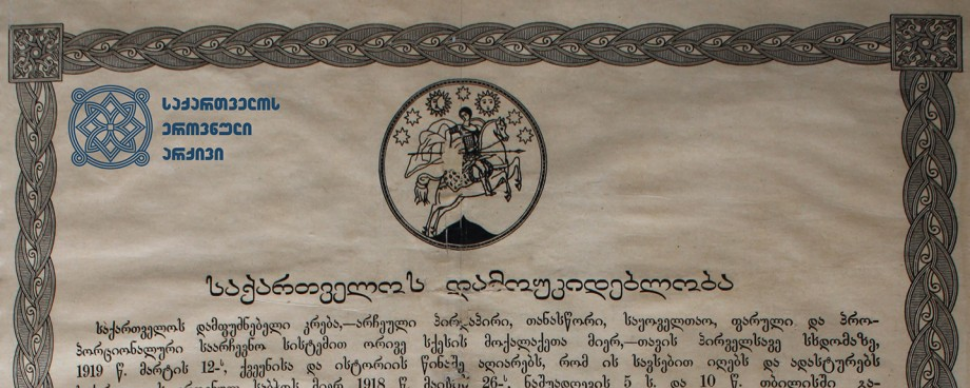 საქართველოს
ეროვნული
არქივი
საქართველოს დამოუკიდებლობა
საქართველოს დამფუძნებელი კრება,—არჩეული პირდაპირი, თანასწორი, საყოველთაო, ფარული და პრო-
პორციონალური საარჩევნო სისტემით ორივე სქესის მოქალაქეთა მიერ,—თავის პირველსავე სხდომაზე,
1919 წ. მარტის 12-ს, ქვეყნისა და ისტორიის წინაშე აღიარებს, რომ ის სავსებით იღებს და ადასტურებს
საბჭოს მიერ 1918 წ. მაისის 26-ს, ნაშუადღევის 5 ს. და 10 წ. თბილისში გა-